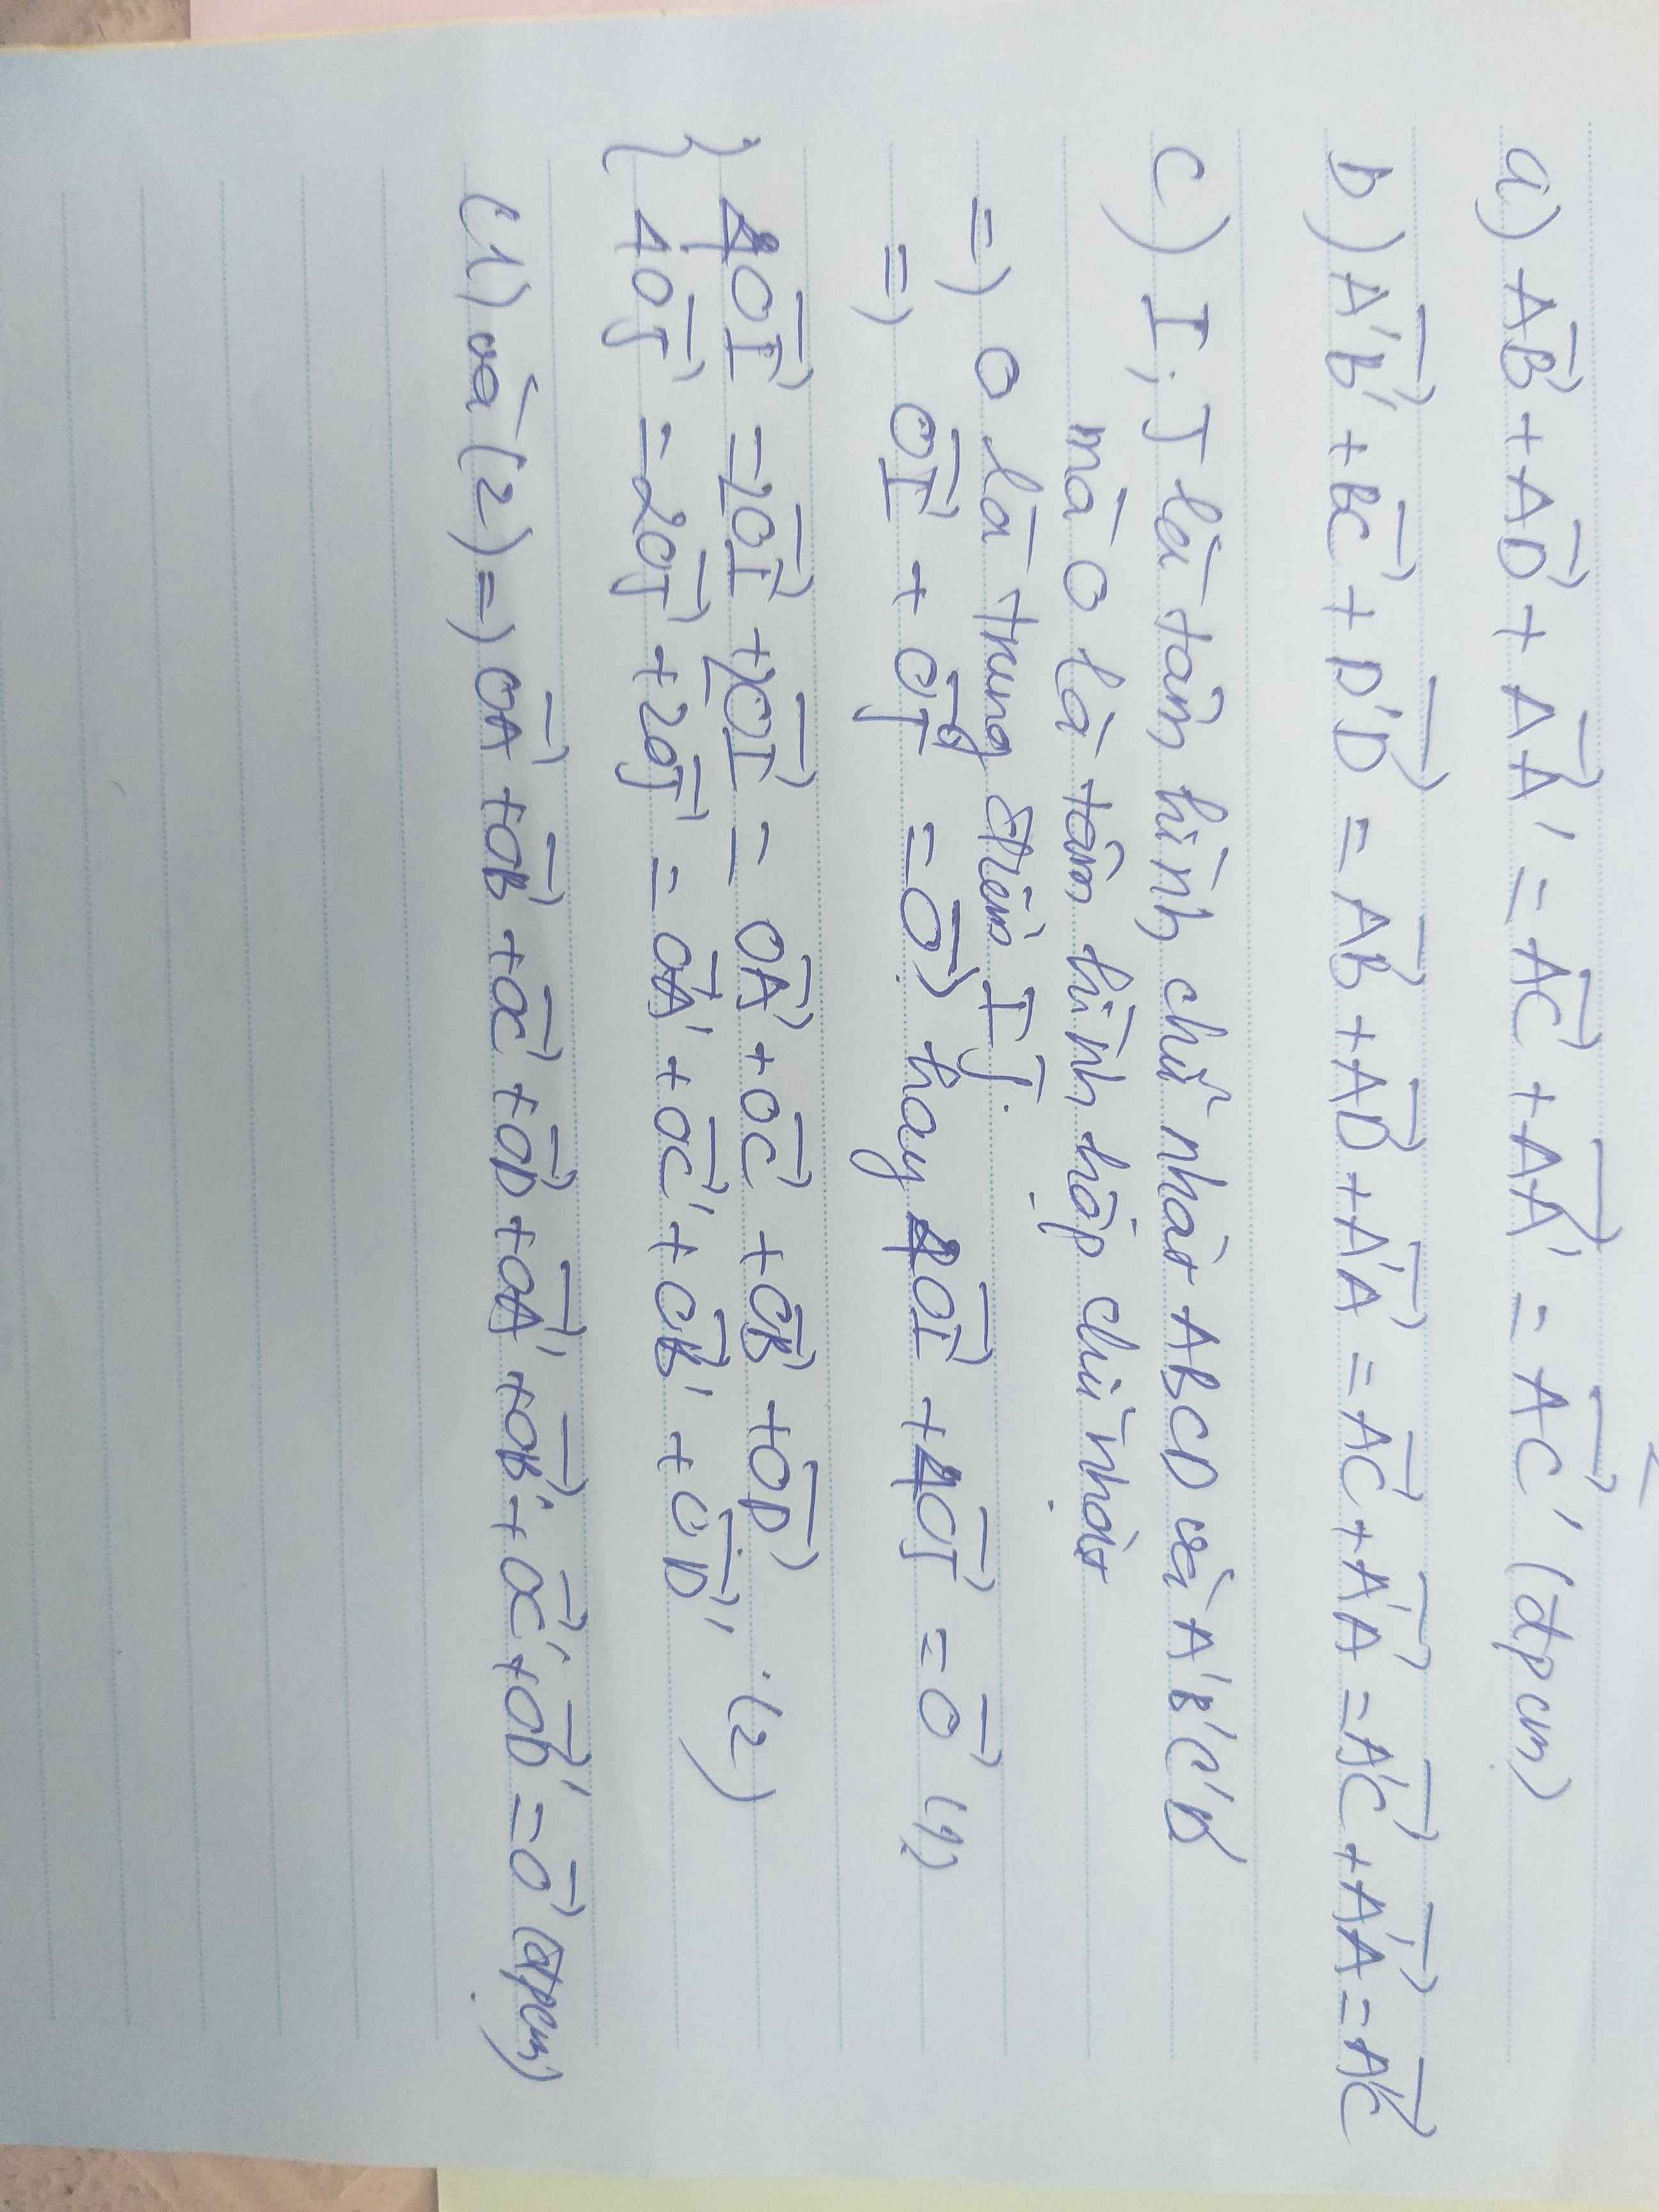 a) AB + AD + AA' = AC + AA' = AC' (đpcm)
b) A'B' + BC + D'D = AB + AD + A'A = AC + A'A = A'C' + A'A = A'C
c) I, J là tâm hình chữ nhật ABCD và A'B'C'D'
mà O là tâm hình hộp chữ nhật
=) O là trung điểm IJ.
=) OI + OJ = O hay 4OI + 4OJ = O (1)
{ 4OI = 2OI + 2OI = OA + OC + OB + OD
4OJ = 2OJ + 2OJ = OA' + OC' + OB' + OD' (2)
(1) và (2) =) OA + OB + OC + OD + OA' + OB' + OC' + OD' = O (đpcm)